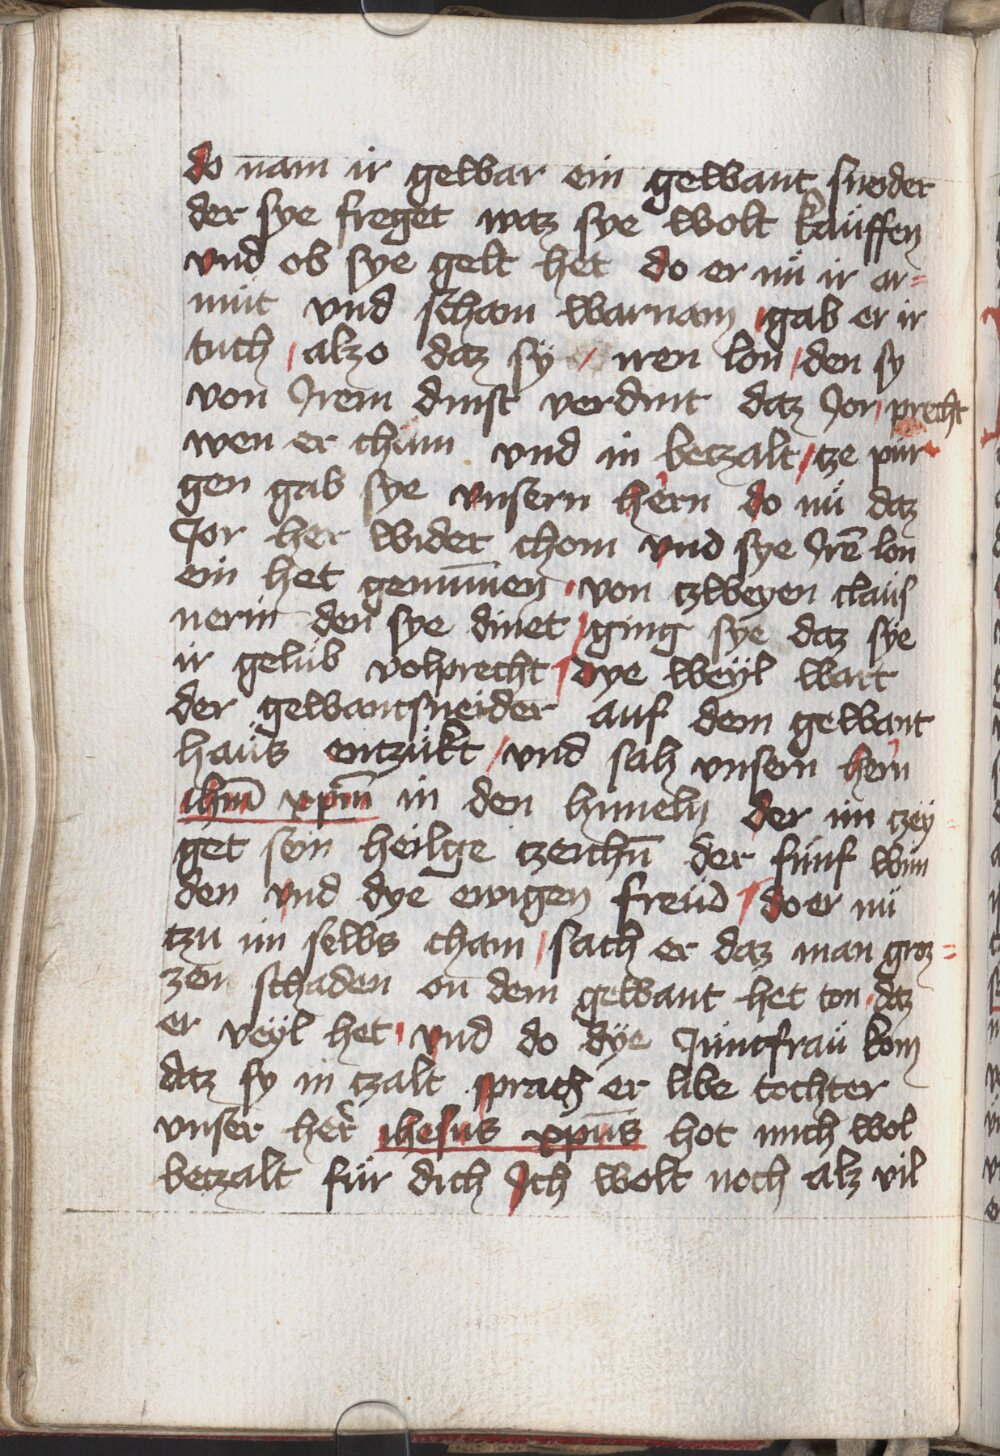 do nam ir gewar ein gewant sneider
der sye freget waz sye wolt kauffen
vnd ob sye gelt het do er nü ir ar=
mut vnd scham warnam / gab er ir
tuch / alzo daz sÿ / iren lon / den sy
von Jrem dinst verdint daz Jor / precht
wen er cham vnd in betzalt / tze pur
gen gab sye vnsern hern do nü daz
Jor her wider chom vnd sye Jrē lon
ein het genūmen / von tzweyen claus
nerin den sye dinet / ging sye daz sye
ir gelüb volprecht / dye weÿl wart
der gewantsneider auf dem gewant
haüs entzükt / vnd sah vnsern hern
ihm̄ xp̄m in den himeln der im tzey
get sein heilge tzeichn̄ der fünf wun
den vnd dye ewigen freüd / do er nü
tzu im selbs cham / sach er daz man groz=
zen schaden on dem gewant het ton / daz
er veÿl het / vnd do dÿe Junckfraü kom
daz sy in tzalt sprach er libe tochter
vnser her ihesus xp̄us hot mich wol
betzalt für dich Jch wolt noch alz vil